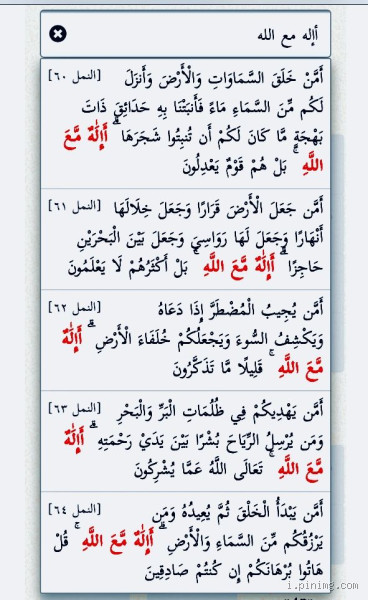 أإله مع الله
أَمَّنْ خَلَقَ السَّمَاوَاتِ وَالْأَرْضَ وَأَنزَلَ [النمل ٦٠]
لَكُم مِّنَ السَّمَاءِ مَاءً فَأَنبَتْنَا بِهِ حَدَائِقَ ذَاتَ
بَهْجَةٍ مَّا كَانَ لَكُمْ أَن تُنبِتُوا شَجَرَهَا ۗ أَإِلَٰهٌ مَّعَ
اللَّهِ ۚ بَلْ هُمْ قَوْمٌ يَعْدِلُونَ
أَمَّن جَعَلَ الْأَرْضَ قَرَارًا وَجَعَلَ خِلَالَهَا [النمل ٦١]
أَنْهَارًا وَجَعَلَ لَهَا رَوَاسِيَ وَجَعَلَ بَيْنَ الْبَحْرَيْنِ
حَاجِزًا ۗ أَإِلَٰهٌ مَّعَ اللَّهِ ۚ بَلْ أَكْثَرُهُمْ لَا يَعْلَمُونَ
أَمَّن يُجِيبُ الْمُضْطَرَّ إِذَا دَعَاهُ [النمل ٦٢]
وَيَكْشِفُ السُّوءَ وَيَجْعَلُكُمْ خُلَفَاءَ الْأَرْضِ ۗ أَإِلَٰهٌ
مَّعَ اللَّهِ ۚ قَلِيلًا مَّا تَذَكَّرُونَ
أَمَّن يَهْدِيكُمْ فِي ظُلُمَاتِ الْبَرِّ وَالْبَحْرِ [النمل ٦٣]
وَمَن يُرْسِلُ الرِّيَاحَ بُشْرًا بَيْنَ يَدَيْ رَحْمَتِهِ ۗ أَإِلَٰهٌ
مَّعَ اللَّهِ ۚ تَعَالَى اللَّهُ عَمَّا يُشْرِكُونَ
أَمَّن يَبْدَأُ الْخَلْقَ ثُمَّ يُعِيدُهُ وَمَن [النمل ٦٤]
يَرْزُقُكُم مِّنَ السَّمَاءِ وَالْأَرْضِ ۗ أَإِلَٰهٌ مَّعَ اللَّهِ ۚ قُلْ
هَاتُوا بُرْهَانَكُمْ إِن كُنتُمْ صَادِقِينَ
i.pinimg.com